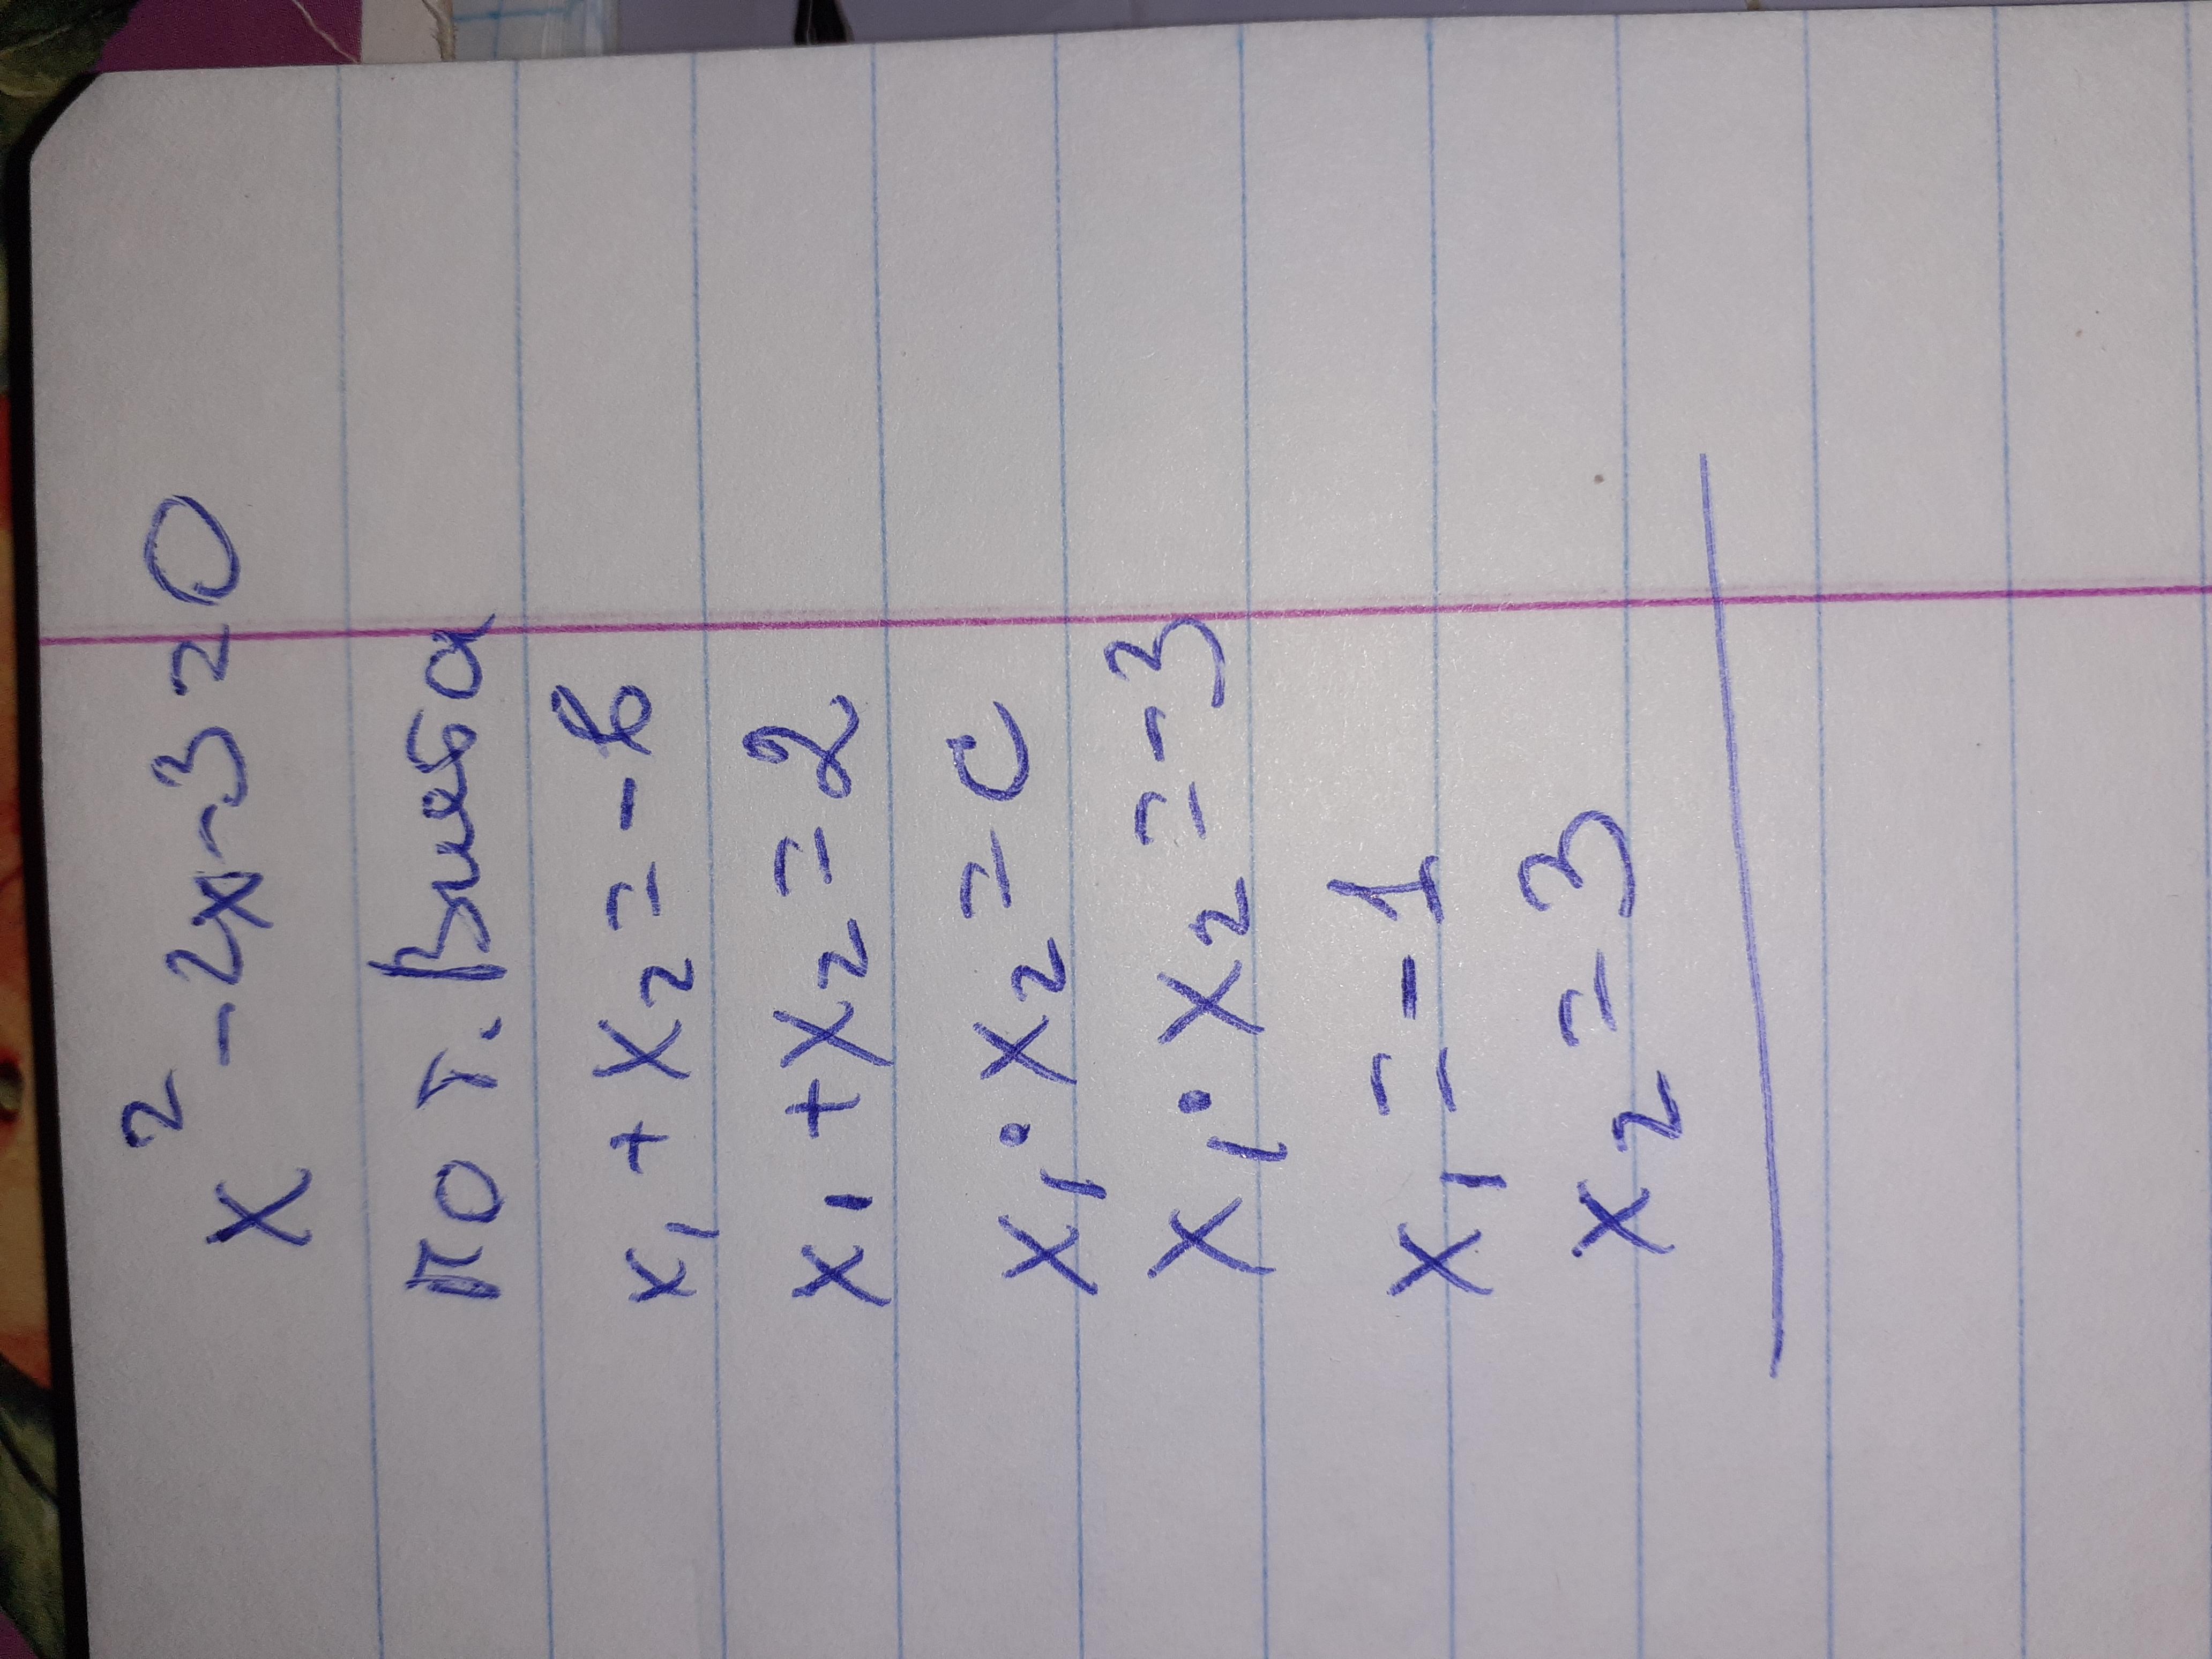 x² - 2x - 3 = 0
по т. Виета
x₁ + x₂ = -b
x₁ + x₂ = 2
x₁ · x₂ = c
x₁ · x₂ = -3
x₁ = -1
x₂ = 3